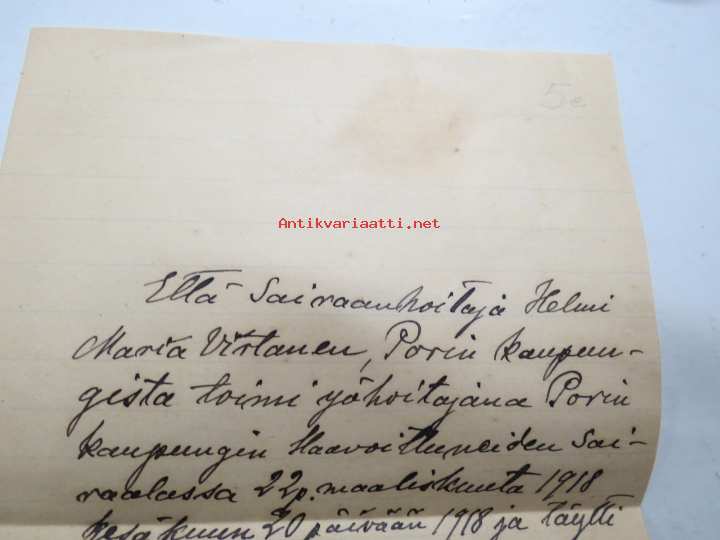 5e
Antikvariaatti.net
Että Sairaanhoitaja Helmi
Maria Virtanen, Porin kaupun-
gista toimi yöhoitajana Porin
kaupungin Haavoittuneiden Sai-
raalassa 22 p. maaliskuuta 1918
kesäkuun 20 päivään 1918 ja täytti